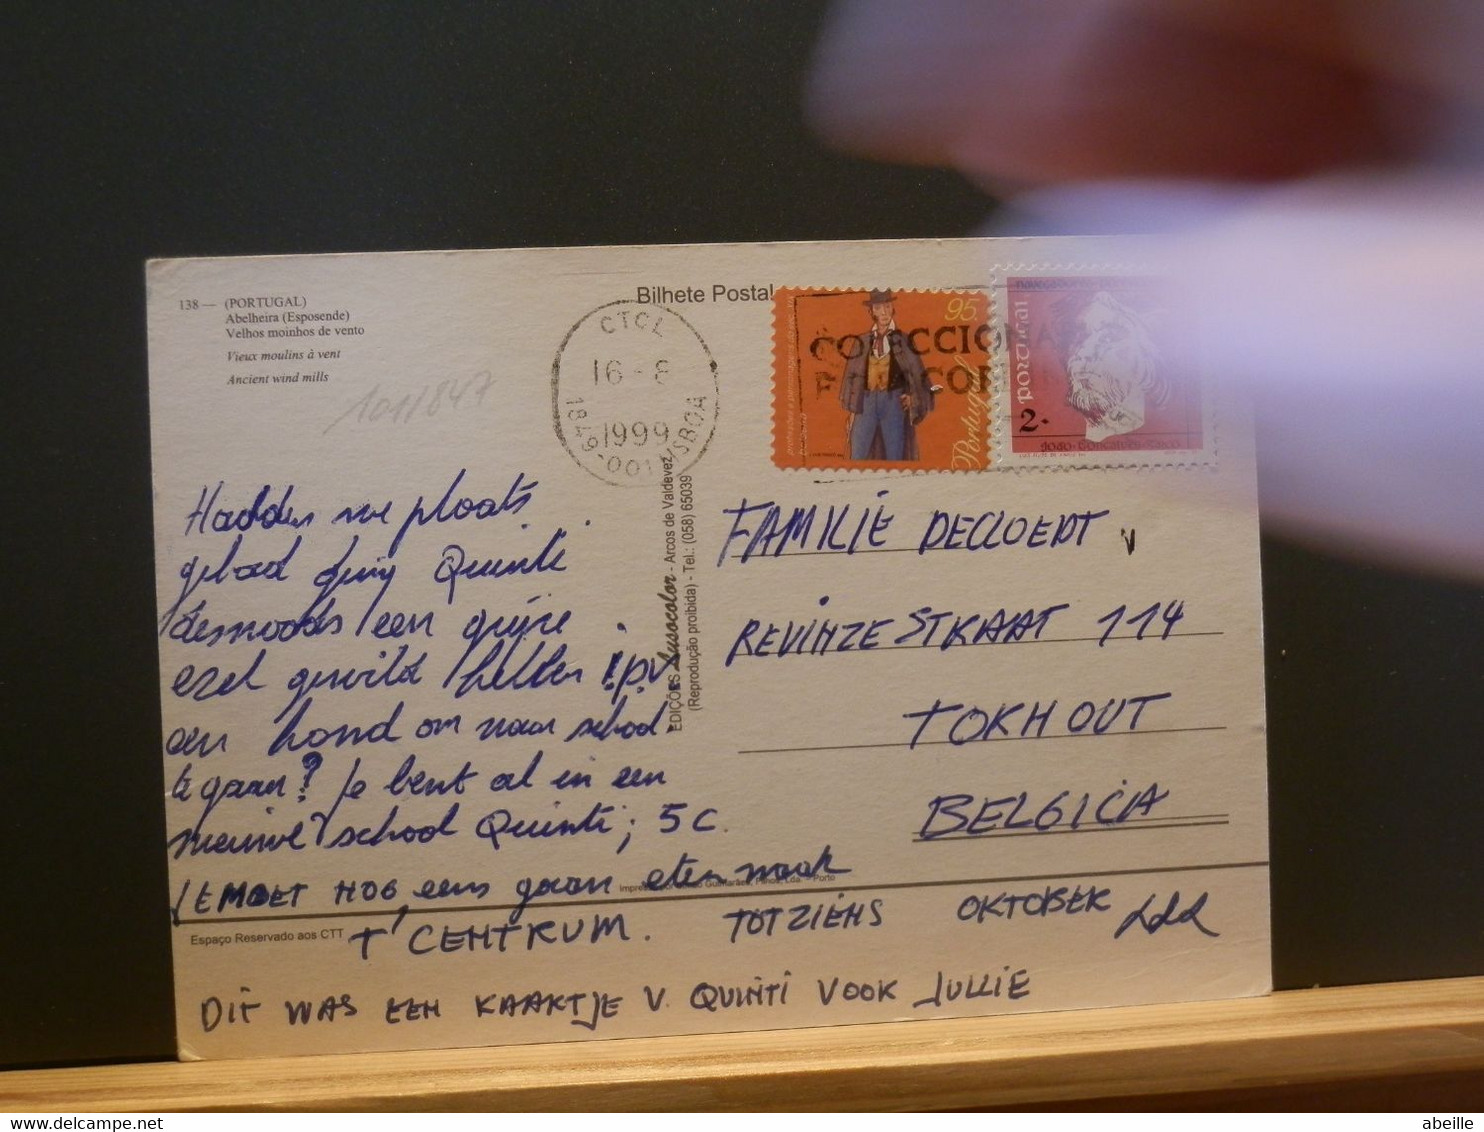 138 — (PORTUGAL)
Abelheira (Esposende)
Velhos moinhos de vento
Vieux moulins à vent
Ancient wind mills
101/847
Bilhete Postal
CTCL
16-8
1999
1849-001 LISBOA
COLECCIONAR
95.
Portugal
portugal
2.-
joão Gonçalves Zarco
EDIÇÕES Lusocolor - Arcos de Valdevez
(Reprodução proibida) - Tel.: (058) 65039
Hadden we plaats
gehad ging Quinti
desnoods een grijze
ezel gewild hebben i.p.v
een hond om naar school
te gaan? Je bent al in een
nieuwe school Quinti; 5 C.
JE MOET NOG eens gaan eten naar
T' CENTRUM. TOT ZIENS OKTOBER
DIT WAS EEN KAARTJE V. QUINTI VOOR JULLIE
FAMILIE DECLOEDT
REVINZESTRAAT 114
TORHOUT
BELGICA
Espaço Reservado aos CTT
Porto
delcampe.net
abeille